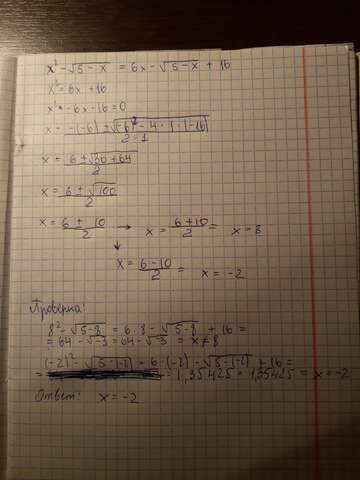 x² - √5-x = 6x - √5-x + 16
x² = 6x + 16
x² - 6x - 16 = 0
x = -(-6) ± √-6² - 4 · 1 · (-16) / 2·1
x = 6 ± √36 + 64 / 2
x = 6 ± √100 / 2
x = 6 ± 10 / 2 → x = 6+10 / 2 = x = 8
↓
x = 6-10 / 2 = x = -2
Проверка:
8² - √5-8 = 6·8 - √5-8 + 16 =
= 64 - √-3 = 64 - √-3 = x ≠ 8
(-2)² - √5-(-2) = 6·(-2) - √5-(-2) + 16 =
= 1,35425 = 1,35425 = x = -2
Ответ: x = -2